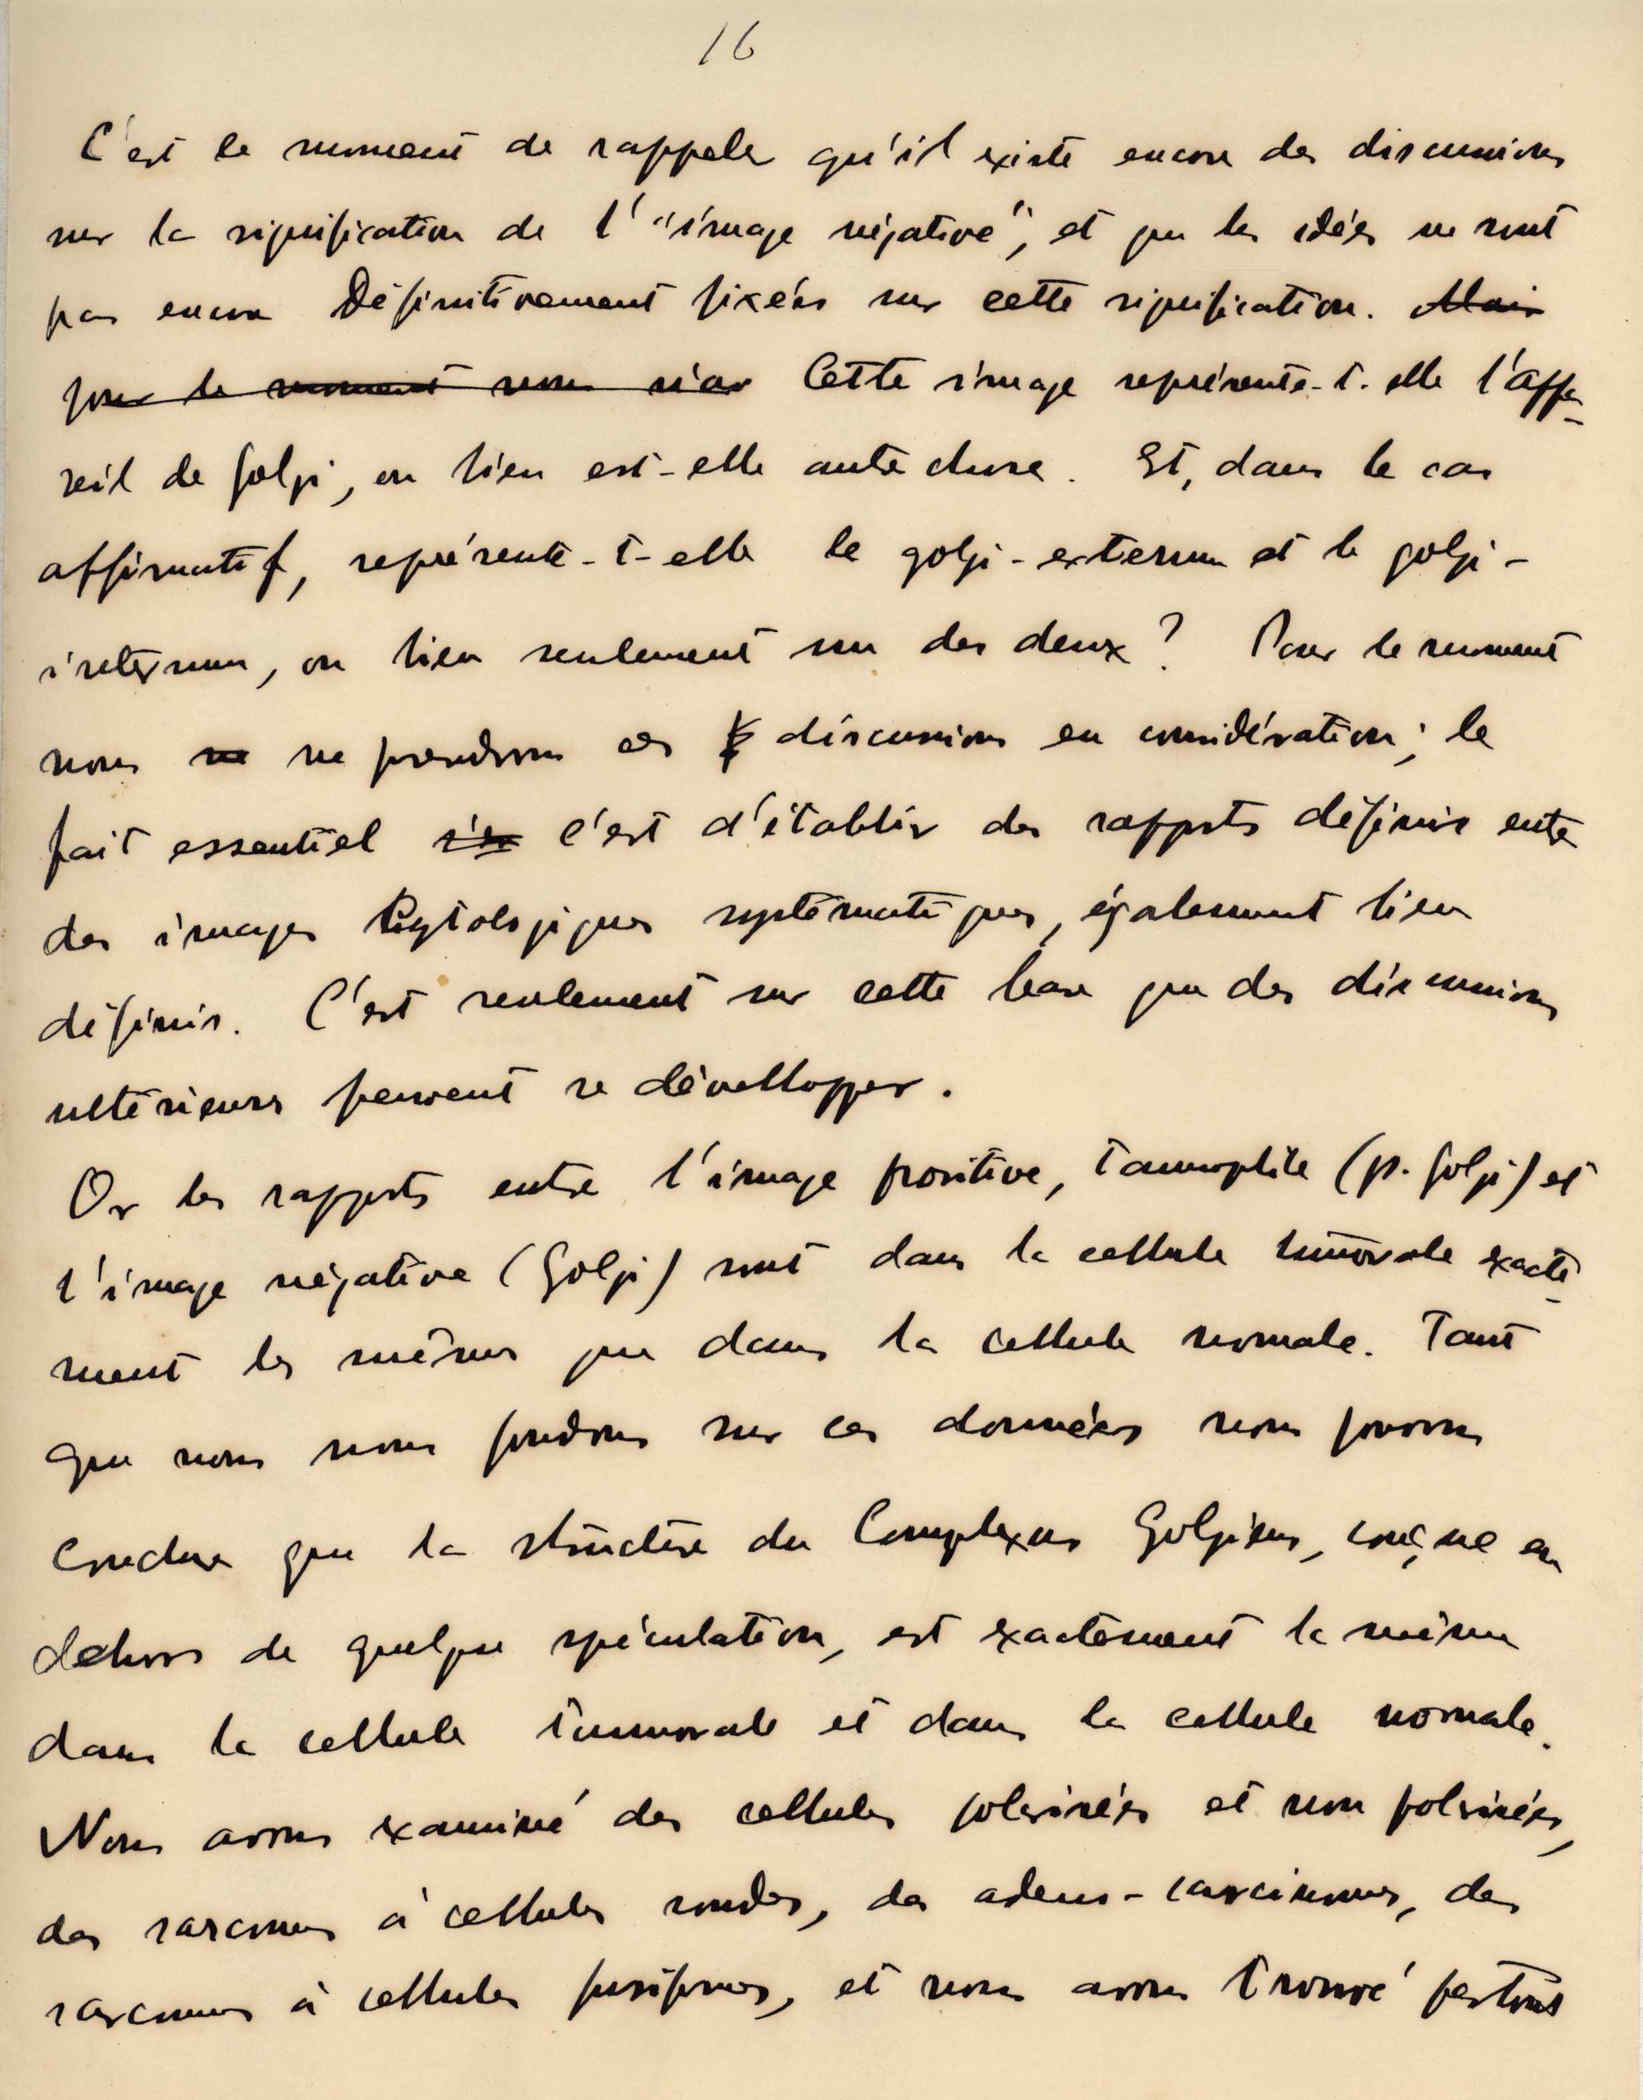 16
C'est le moment de rappeler qu'il existe encore des discussions
sur la signification de l'"image négative", et que les idées ne sont
pas encore Définitivement fixées sur cette signification. Mais
pour le moment nous n'av Cette image représente-t-elle l'appa-
reil de Golgi, ou bien est-elle autre chose. Et, dans le cas
affirmatif, représente-t-elle le golgi-externum et le golgi-
internum, ou bien seulement un des deux? Pour le moment
nous ne ne prendrons ces discussions en considération; le
fait essentiel c'est d'établir des rapports définis entre
des images cytologiques systématiques, également bien
définis. C'est seulement sur cette base que des discussions
ultérieures peuvent se dévellopper.
Or les rapports entre l'image positive, tannophile (p. Golgi) et
l'image négative (Golgi) sont dans la cellule tumorale exacte-
ment les mêmes que dans la cellule normale. Tant
que nous nous fondons sur ces données nous pouvons
conclure que la structure du Complexus Golgien, conçue en
dehors de quelque spéculation, est exactement la même
dans la cellule tumorale et dans la cellule normale.
Nous avons examiné des cellules polarisées et non polarisées,
des sarcomes à cellules rondes, des adeno-carcinomes, des
sarcomes à cellules fusiformes, et nous avons trouvé partout